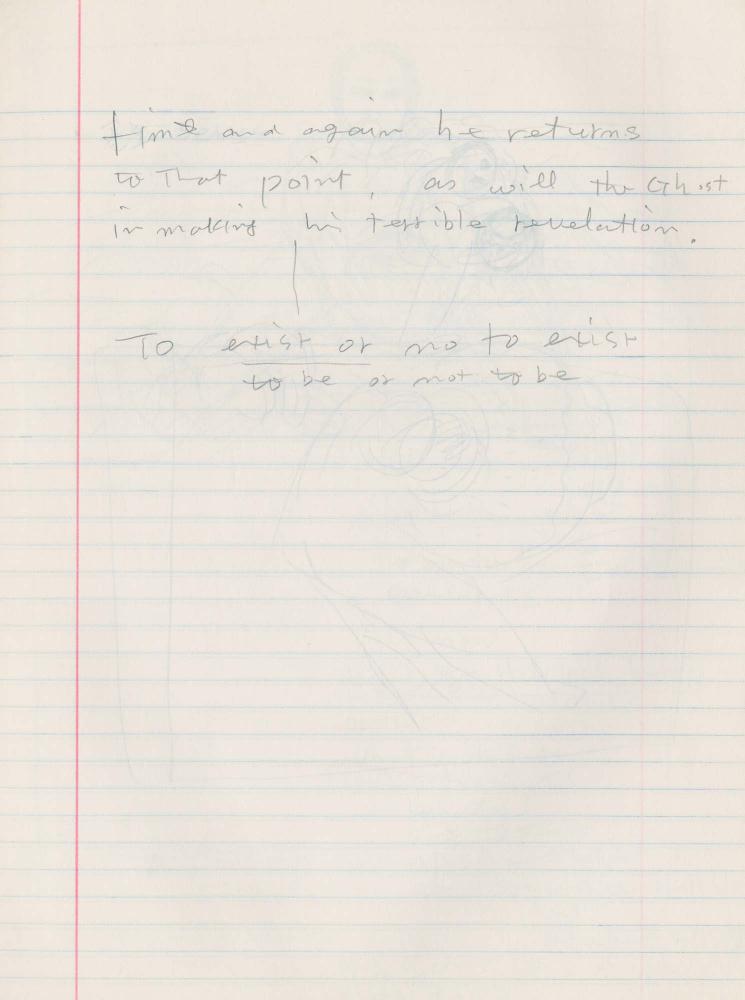 time and again he returns
to That point, as will the Ghost
in making his terrible revelation.
To exist or no to exist
to be or not to be